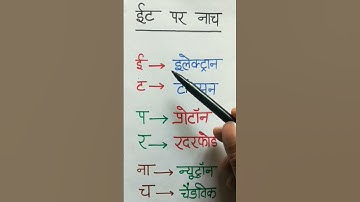 ईट पर नाच
ई → इलेक्ट्रान
ट → टॉमसन
प → प्रोटॉन
र → रदरफोर्ड
ना → न्यूट्रॉन
च → चैडविक